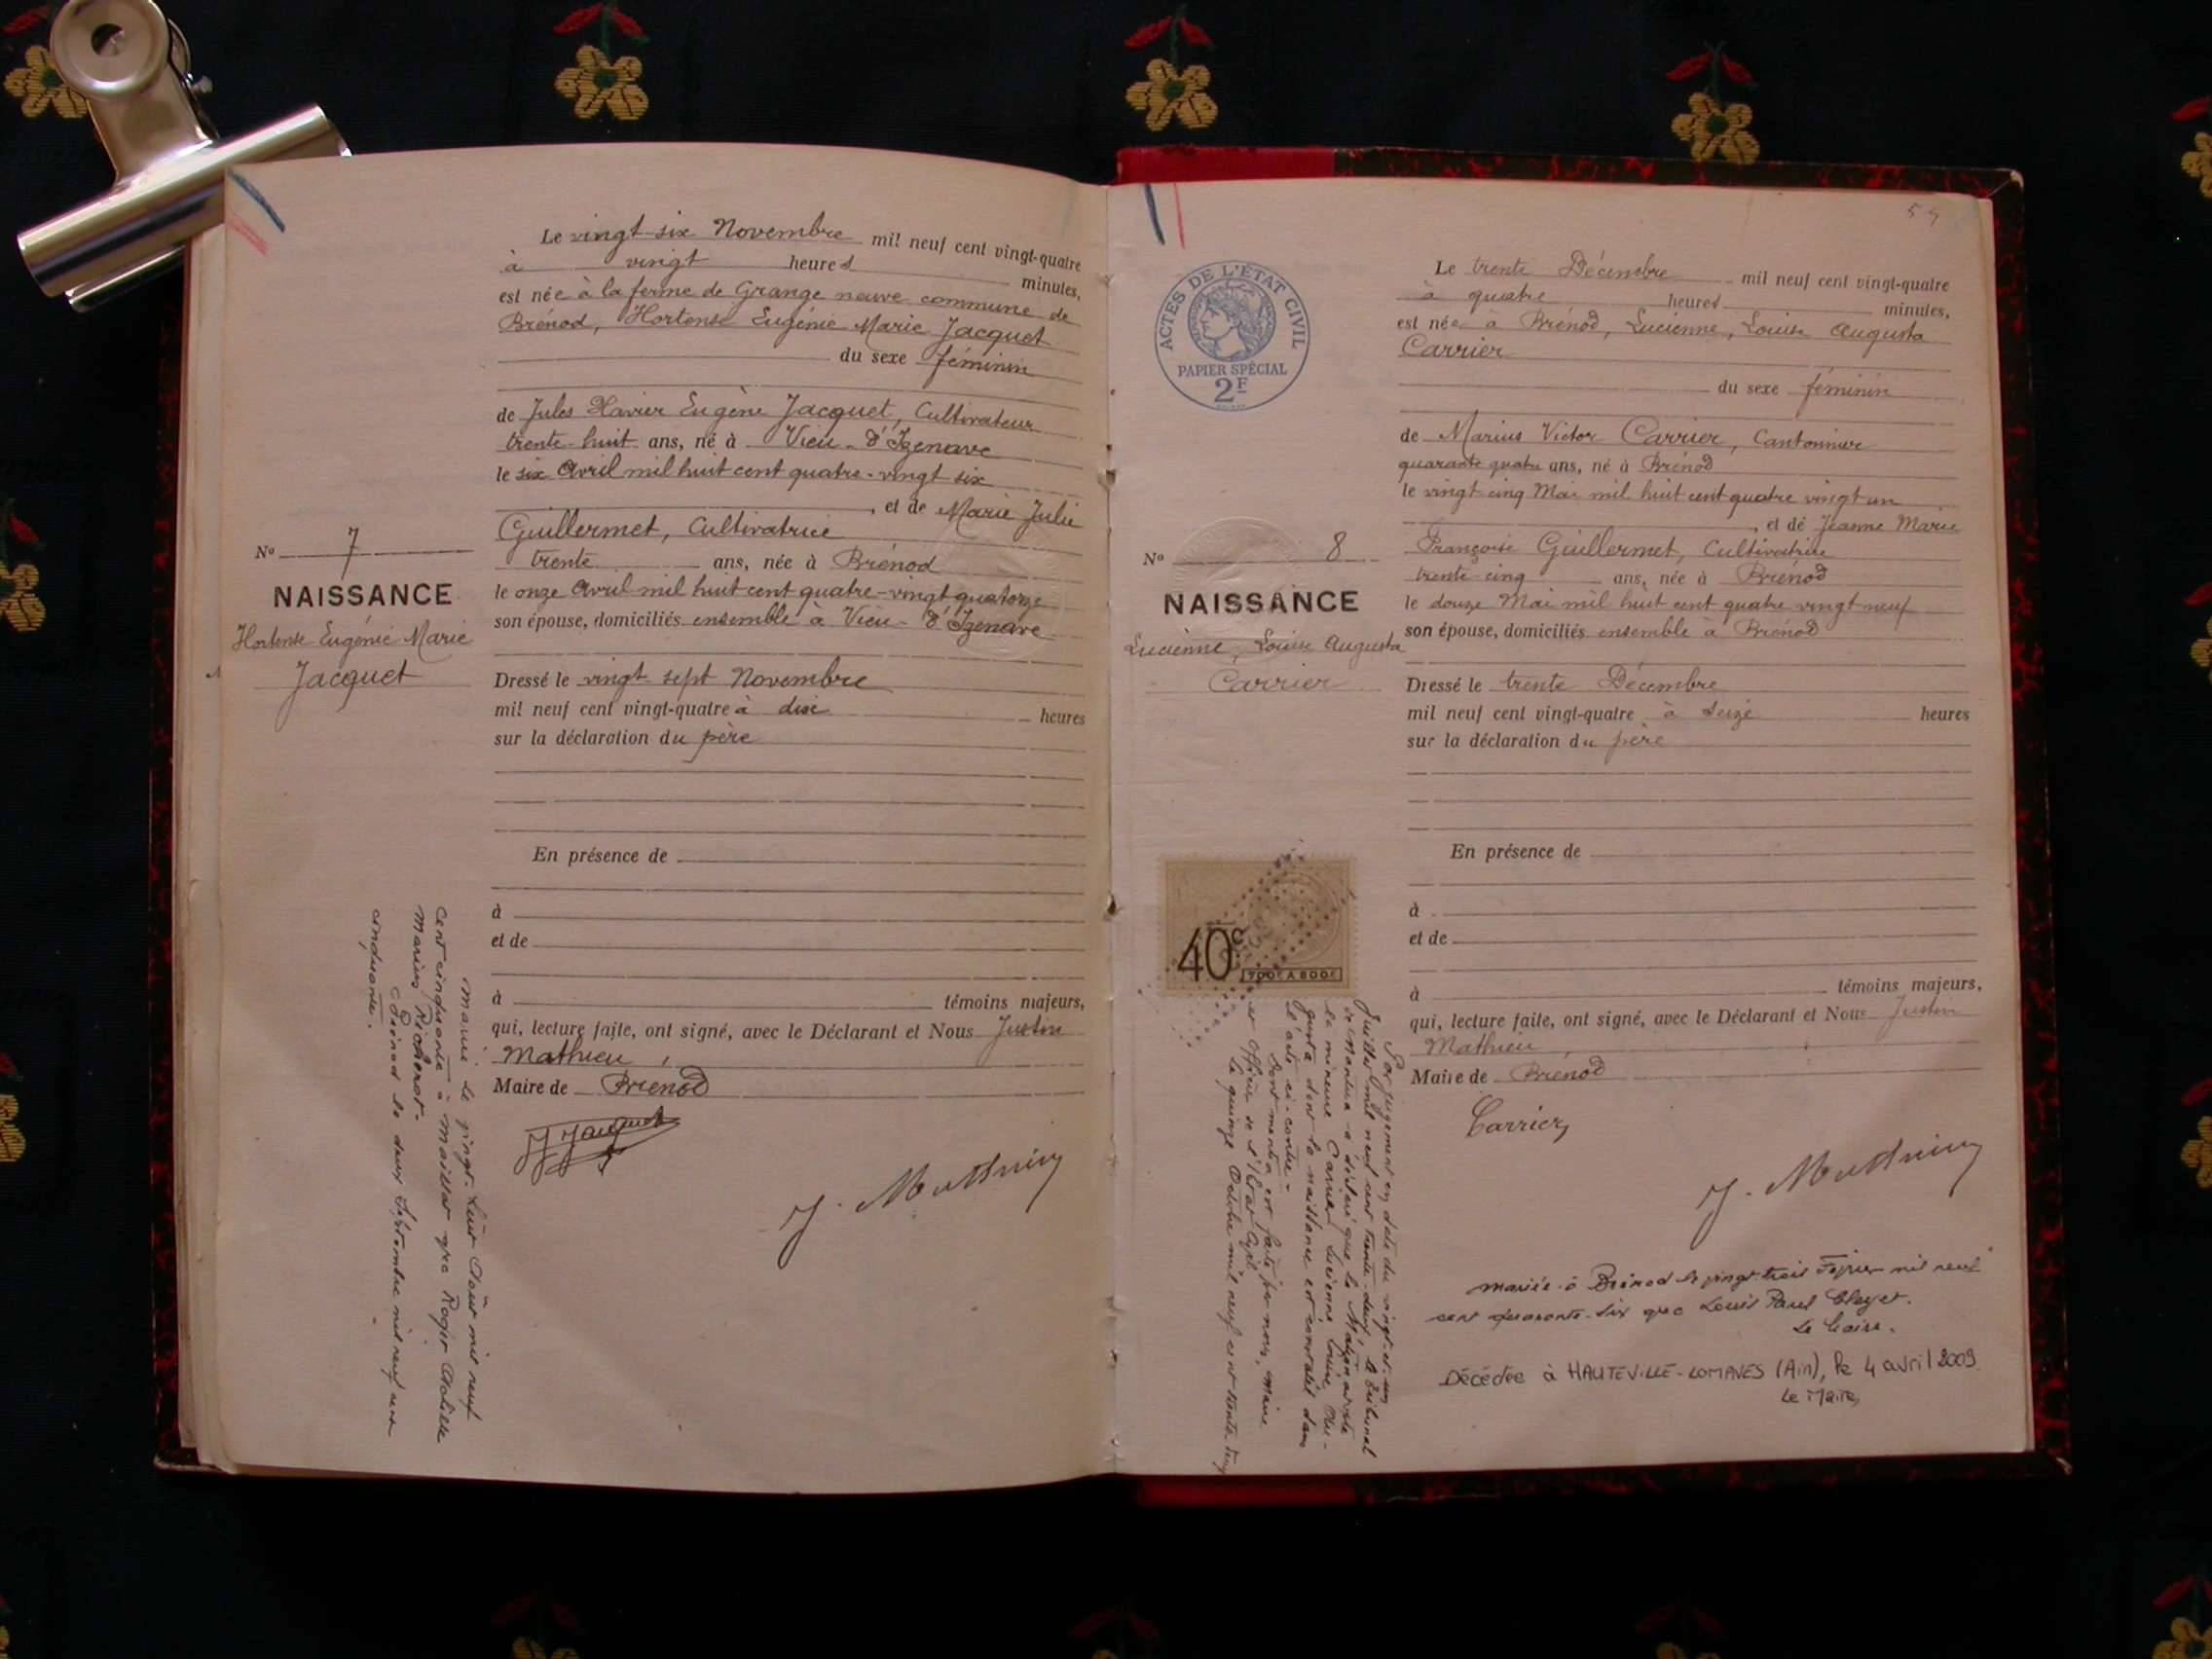 Le vingt-six Novembre mil neuf cent vingt-quatre
à vingt heures minutes,
est née à la ferme de Grange neuve commune de
Brénod, Hortense Eugénie Marie Jacquet
du sexe féminin
de Jules Xavier Eugène Jacquet, Cultivateur
trente-huit ans, né à Vieu-d'Izenave
le six Avril mil huit cent quatre-vingt six
, et de Marie Julie
Guillermet, Cultivatrice
trente ans, née à Brénod
le onze Avril mil huit cent quatre-vingt quatorze
son épouse, domiciliés ensemble à Vieu-d'Izenave
Dressé le vingt sept Novembre
mil neuf cent vingt-quatre à dix heures
sur la déclaration du père
En présence de
à
et de
à témoins majeurs,
qui, lecture faite, ont signé, avec le Déclarant et Nous Justin
Mathieu,
Maire de Brénod
J Jacquet
J. Mathieu
No 7
NAISSANCE
Hortense Eugénie Marie
Jacquet
mariée le vingt-huit Août mil neuf
cent cinquante à Maillat avec Roger
Marius
Brénod le deux Septembre mil neuf cent
cinquante.
54
ACTES DE L'ÉTAT CIVIL
PAPIER SPÉCIAL
2F
No 8
NAISSANCE
Lucienne, Louise Augusta
Carrier
Le trente Décembre mil neuf cent vingt-quatre
à quatre heures minutes,
est née à Brénod, Lucienne, Louise Augusta
Carrier
du sexe féminin
de Marius Victor Carrier, Cantonnier
quarante quatre ans, né à Brénod
le vingt cinq Mai mil huit cent quatre vingt un
, et de Jeanne Marie
Françoise Guillermet, Cultivatrice
trente-cinq ans, née à Brénod
le douze Mai mil huit cent quatre vingt neuf
son épouse, domiciliés ensemble à Brénod
Dressé le trente Décembre
mil neuf cent vingt-quatre à seize heures
sur la déclaration du père
En présence de
à
et de
à témoins majeurs,
qui, lecture faite, ont signé, avec le Déclarant et Nous Justin
Mathieu
Maire de Brénod
Carrier
J. Mathieu
40c
700F A 800F
Par jugement en date du vingt-et-un
Juillet mil neuf cent trente-deux, le Tribunal
de Nantua a déclaré que
la mineure Carrier Lucienne Louise Au-
gusta dont la naissance est constatée dans
l'acte ci-contre.
Dont mention est faite par nous, Maire
et officier de l'Etat Civil
le quinze Octobre mil neuf cent trente deux
mariée à Brénod le vingt-trois Février mil neuf
cent quarante-six avec Louis Paul
Le Maire.
Décédée à HAUTEVILLE-LOMPNES (Ain), le 4 avril 2009.
Le Maire,